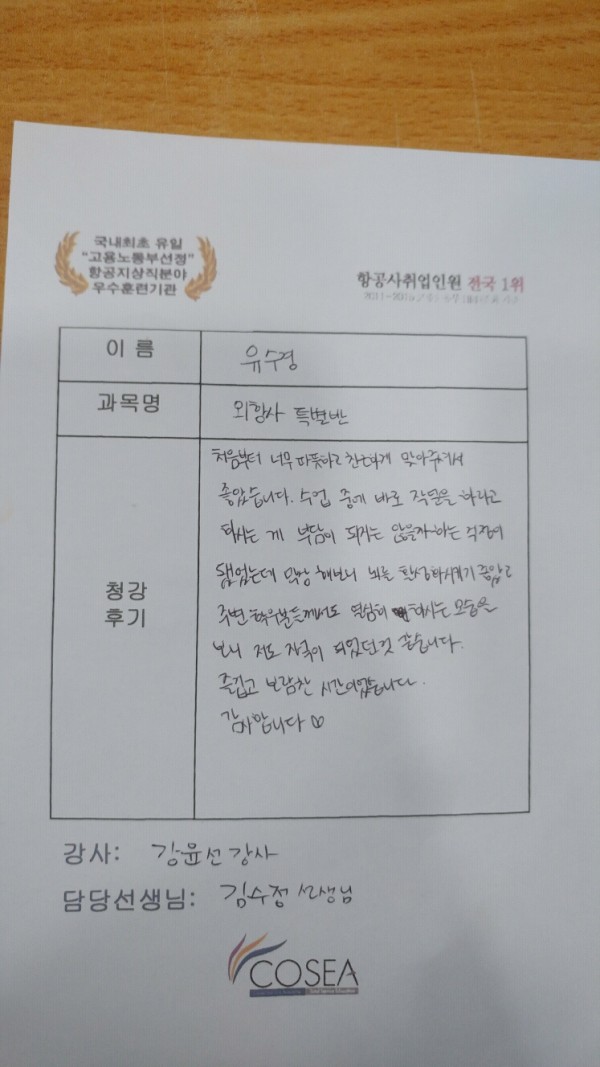 국내최초 유일
"고용노동부선정"
항공지상직분야
우수훈련기관
항공사취업인원 전국 1위
이 름
유수경
과목명
외항사 특별반
청강
후기
처음부터 너무 따뜻하고 친근하게 맞아주셔서
좋았습니다. 수업 중에 바로 작문을 하라고
하시는 게 부담이 되지는 않을까 하는 걱정이
됐었는데 막상 해보니 뇌를 활성화시키기 좋았고
주변 학우분들께서도 열심히 하시는 모습을
보니 저도 자극이 되었던것 같습니다.
즐겁고 보람찬 시간이었습니다.
감사합니다 ♡
강사: 강윤선 강사
담당선생님: 김수정 선생님
COSEA